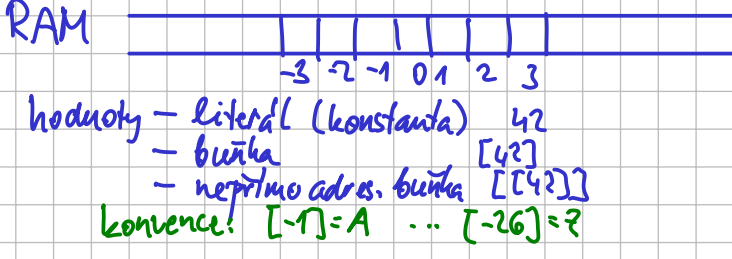 RAM
-3 -2 -1 0 1 2 3
hodnoty - literál (konstanta) 42
- buňka [42]
- nepřímo adres. buňka [[42]]
konvence: [-1]=A ... [-26]=Z